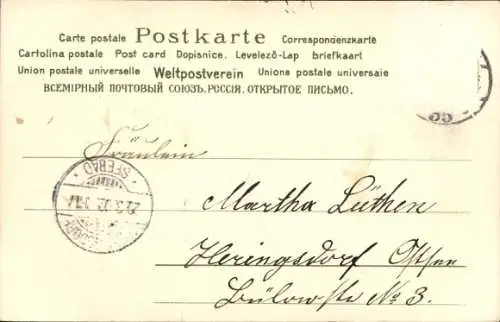 Carte postale Postkarte Correspondenzkarte
Cartolina postale Post card Dopisnice. Levelező-Lap briefkaart
Union postale universelle Weltpostverein Unione postale universaie
ВСЕМІРНЫЙ ПОЧТОВЫЙ СОЮЗЪ. РОССІЯ. ОТКРЫТОЕ ПИСЬМО.
Fräulein
Martha Lüthen
Heringsdorf Ostsee
Bülowstr No 3.
SEEBAD